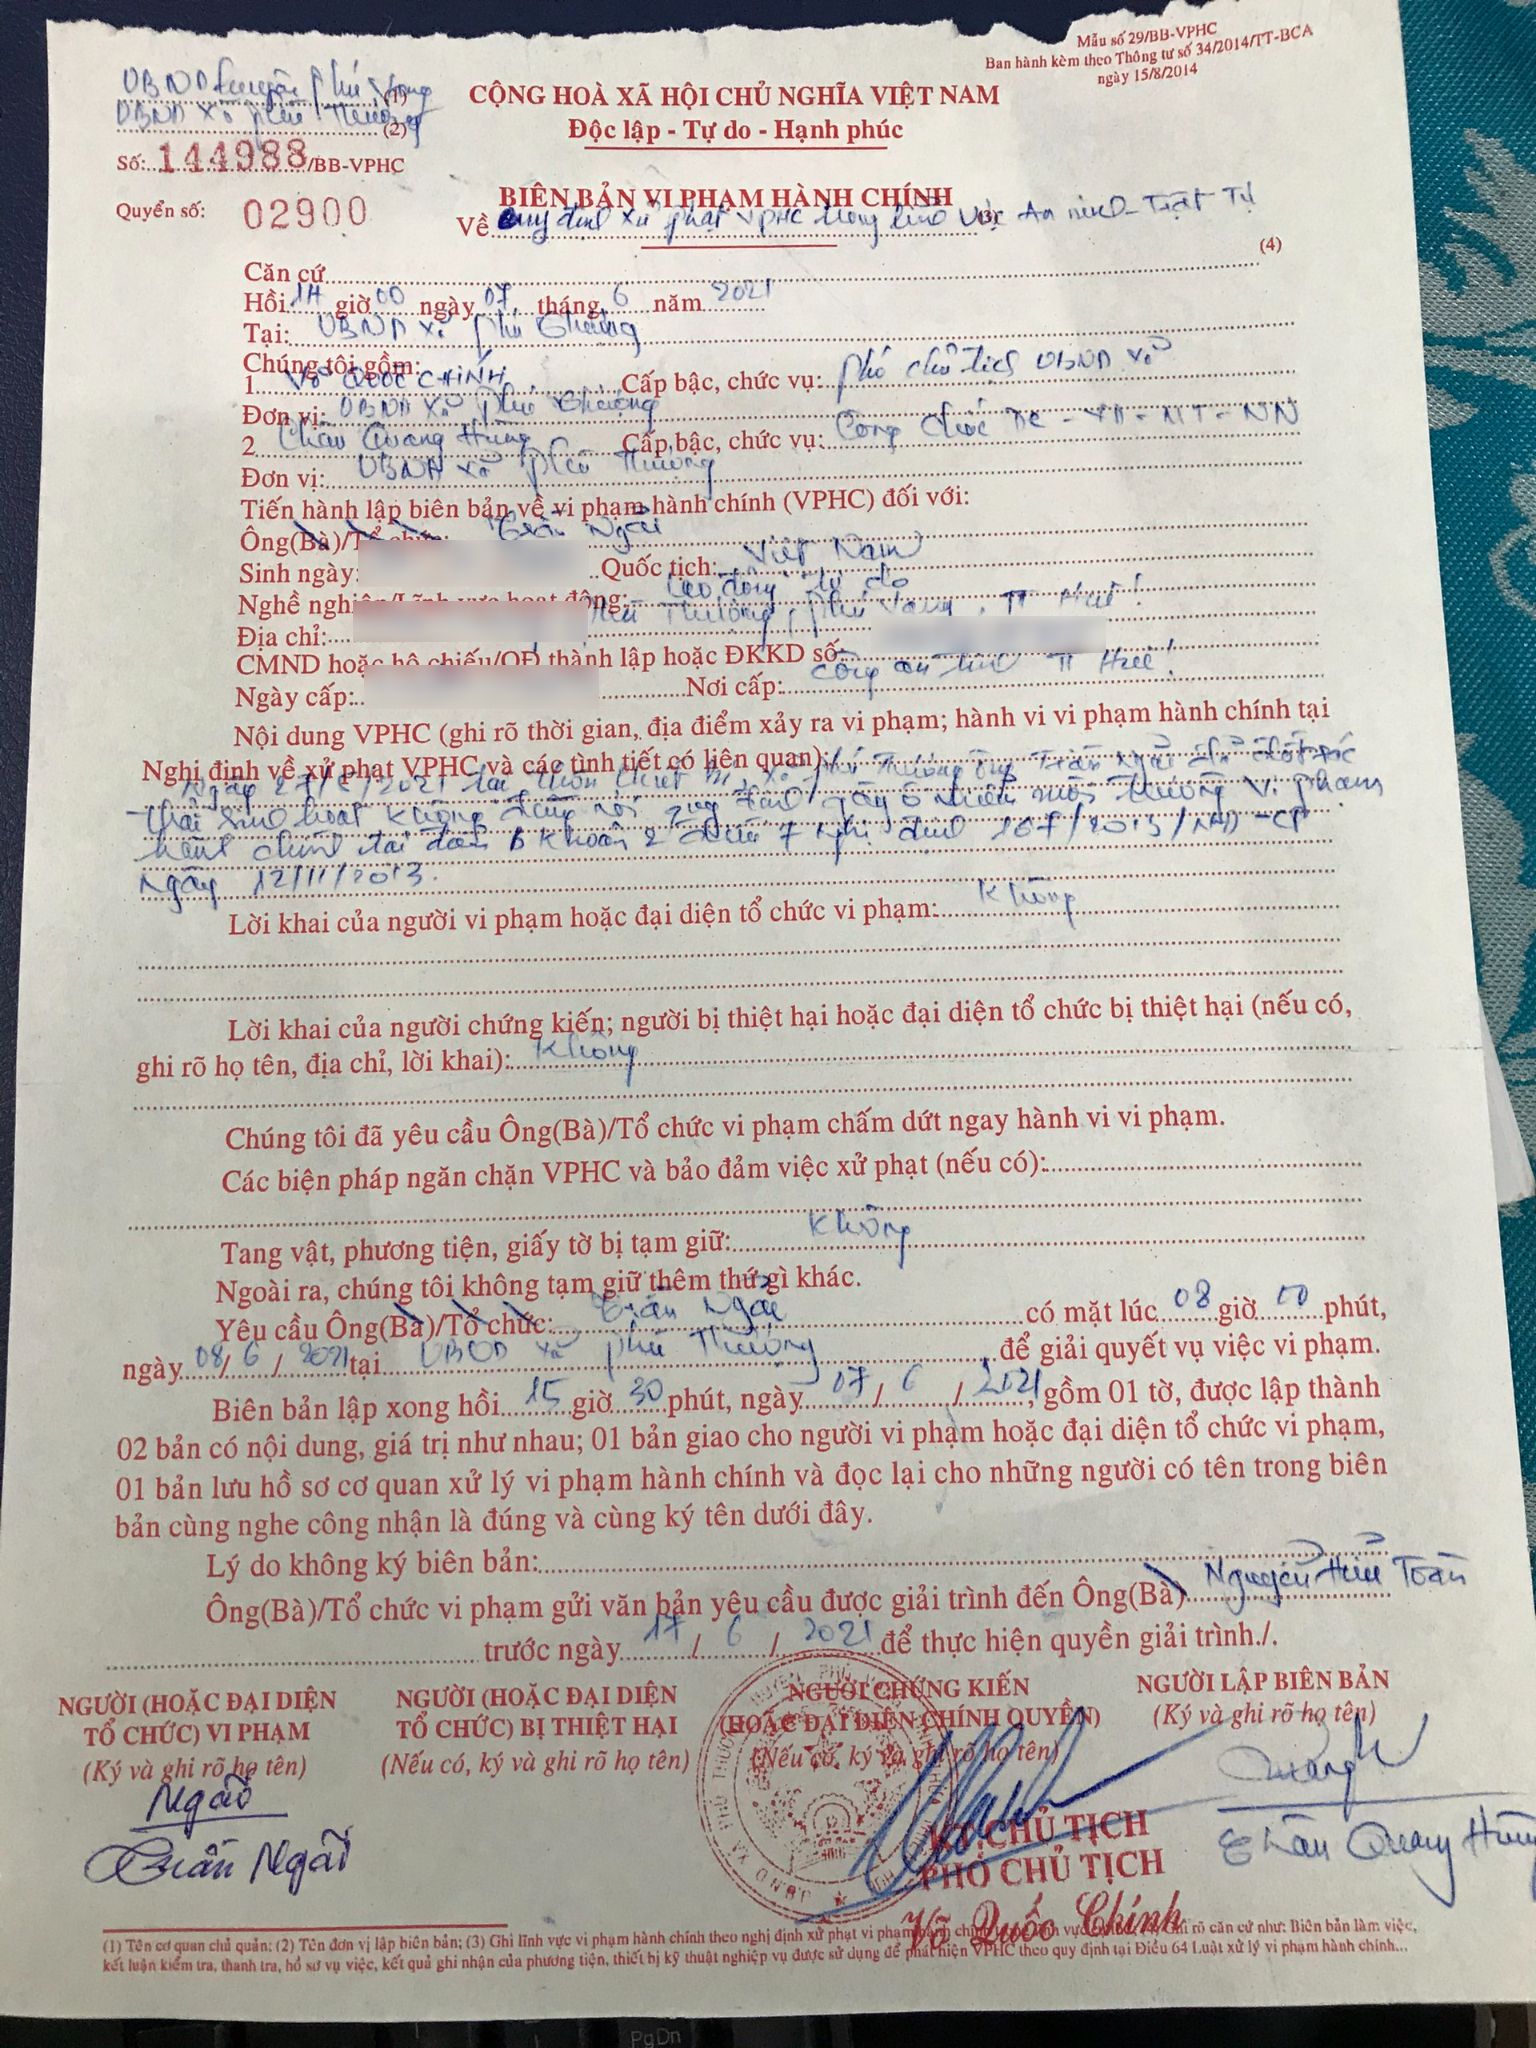 Mẫu số 29/BB-VPHC
Ban hành kèm theo Thông tư số 34/2014/TT-BCA
ngày 15/8/2014
UBND huyện Phú Vang (1)
UBND xã Phú Thượng (2)
Số: 144988/BB-VPHC
Quyển số: 02900
CỘNG HOÀ XÃ HỘI CHỦ NGHĨA VIỆT NAM
Độc lập - Tự do - Hạnh phúc
BIÊN BẢN VI PHẠM HÀNH CHÍNH
Về quy định xử phạt VPHC trong lĩnh vực An ninh - Trật Tự (3)
Căn cứ (4)
Hồi 14 giờ 00 ngày 07 tháng 6 năm 2021
Tại: UBND xã Phú Thượng
Chúng tôi gồm:
1 Võ QUỐC CHÍNH Cấp bậc, chức vụ: Phó chủ tịch UBND xã
Đơn vị: UBND xã Phú Thượng
2 Quang Hùng Cấp bậc, chức vụ: Công chức ĐC - XD - MT - NN
Đơn vị: UBND xã Phú Thượng
Tiến hành lập biên bản về vi phạm hành chính (VPHC) đối với:
Ông(Bà)/Tổ chức: Trần Ngãi
Sinh ngày: Quốc tịch: Việt Nam
Nghề nghiệp/Lĩnh vực hoạt động: Lao động tự do
Địa chỉ: Phú Thượng, Phú Vang, TT Huế!
CMND hoặc hộ chiếu/QĐ thành lập hoặc ĐKKD số:
Ngày cấp: Nơi cấp: Công an tỉnh TT Huế!
Nội dung VPHC (ghi rõ thời gian, địa điểm xảy ra vi phạm; hành vi vi phạm hành chính tại
Nghị định về xử phạt VPHC và các tình tiết có liên quan):
Ngày 27/5/2021 tại thôn xã Phú Thượng ông Trần Ngãi đã rác
thải sinh hoạt không đúng nơi quy định gây ô nhiễm môi trường vi phạm
hành chính tại điểm b khoản 2 điều 7 Nghị định 167/2013/NĐ-CP
Ngày 12/11/2013.
Lời khai của người vi phạm hoặc đại diện tổ chức vi phạm: Không
Lời khai của người chứng kiến; người bị thiệt hại hoặc đại diện tổ chức bị thiệt hại (nếu có,
ghi rõ họ tên, địa chỉ, lời khai): Không
Chúng tôi đã yêu cầu Ông(Bà)/Tổ chức vi phạm chấm dứt ngay hành vi vi phạm.
Các biện pháp ngăn chặn VPHC và bảo đảm việc xử phạt (nếu có):
Tang vật, phương tiện, giấy tờ bị tạm giữ: Không
Ngoài ra, chúng tôi không tạm giữ thêm thứ gì khác.
Yêu cầu Ông(Bà)/Tổ chức: Trần Ngãi có mặt lúc 08 giờ 00 phút,
ngày 08/ 6 / 2021 tại UBND xã Phú Thượng để giải quyết vụ việc vi phạm.
Biên bản lập xong hồi 15 giờ 30 phút, ngày 07 / 6 / 2021, gồm 01 tờ, được lập thành
02 bản có nội dung, giá trị như nhau; 01 bản giao cho người vi phạm hoặc đại diện tổ chức vi phạm,
01 bản lưu hồ sơ cơ quan xử lý vi phạm hành chính và đọc lại cho những người có tên trong biên
bản cùng nghe công nhận là đúng và cùng ký tên dưới đây.
Lý do không ký biên bản:
Ông(Bà)/Tổ chức vi phạm gửi văn bản yêu cầu được giải trình đến Ông(Bà) Nguyễn Hữu Toàn
trước ngày 17 / 6 / 2021 để thực hiện quyền giải trình./.
NGƯỜI (HOẶC ĐẠI DIỆN
TỔ CHỨC) VI PHẠM
(Ký và ghi rõ họ tên)
Ngãi
Trần Ngãi
NGƯỜI (HOẶC ĐẠI DIỆN
TỔ CHỨC) BỊ THIỆT HẠI
(Nếu có, ký và ghi rõ họ tên)
NGƯỜI CHỨNG KIẾN
(HOẶC ĐẠI DIỆN CHÍNH QUYỀN)
(Nếu có, ký và ghi rõ họ tên)
KT. CHỦ TỊCH
PHÓ CHỦ TỊCH
Võ Quốc Chính
NGƯỜI LẬP BIÊN BẢN
(Ký và ghi rõ họ tên)
Quang Hùng
(1) Tên cơ quan chủ quản; (2) Tên đơn vị lập biên bản; (3) Ghi lĩnh vực vi phạm hành chính theo nghị định xử phạt vi phạm hành chính lĩnh vực (4) Ghi rõ căn cứ như: Biên bản làm việc,
kết luận kiểm tra, thanh tra, hồ sơ vụ việc, kết quả ghi nhận của phương tiện, thiết bị kỹ thuật nghiệp vụ được sử dụng để phát hiện VPHC theo quy định tại Điều 64 Luật xử lý vi phạm hành chính...
PgDn